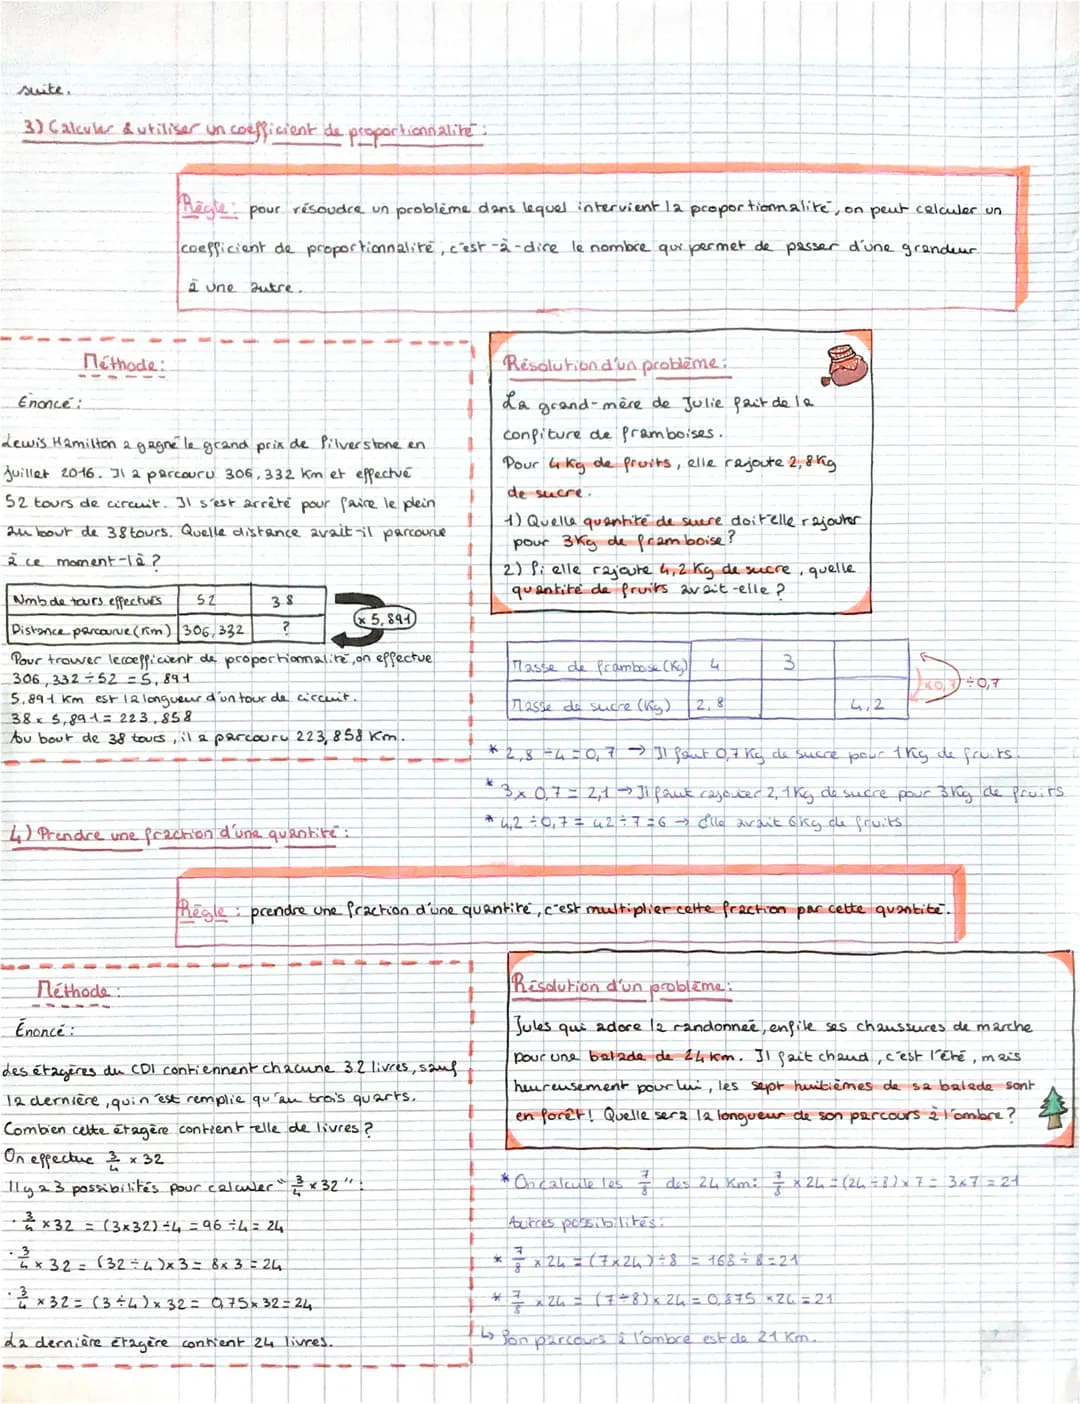 suite.
3) Calculer & utiliser un coefficient de proportionnalité :
Règle : pour résoudre un problème dans lequel intervient la proportionnalité, on peut calculer un
coefficient de proportionnalité, c'est-à-dire le nombre qui permet de passer d'une grandeur
à une autre.
Méthode :
Énoncé :
Lewis Hamilton a gagné le grand prix de Silverstone en
juillet 2016. Il a parcouru 306,332 Km et effectué
52 tours de circuit. Il s'est arrêté pour faire le plein
au bout de 38 tours. Quelle distance avait-il parcourue
à ce moment-là ?
Nmb de tours effectués 52 38
Distance parcourue (Km) 306,332 ?
x 5,891
Pour trouver le coefficient de proportionnalité, on effectue
306,332 ÷ 52 = 5,891
5,891 Km est la longueur d'un tour de circuit.
38 x 5,891 = 223,858
Au bout de 38 tours, il a parcouru 223,858 Km.
Résolution d'un problème :
La grand-mère de Julie fait de la
confiture de framboises.
Pour 4 Kg de fruits, elle rajoute 2,8 Kg
de sucre.
1) Quelle quantité de sucre doit elle rajouter
pour 3 Kg de framboise ?
2) Si elle rajoute 4,2 Kg de sucre, quelle
quantité de fruits avait-elle ?
Masse de framboise (Kg) 4 3
Masse de sucre (Kg) 2,8 4,2
x0,7 ÷0,7
* 2,8 ÷ 4 = 0,7 → Il faut 0,7 Kg de sucre pour 1 Kg de fruits.
* 3 x 0,7 = 2,1 → Il faut rajouter 2,1 Kg de sucre pour 3 Kg de fruits
* 4,2 ÷ 0,7 = 42 ÷ 7 = 6 → Elle avait 6 Kg de fruits
4) Prendre une fraction d'une quantité :
Règle : prendre une fraction d'une quantité, c'est multiplier cette fraction par cette quantité.
Méthode :
Énoncé :
Les étagères du CDI contiennent chacune 32 livres, sauf
la dernière, qui n'est remplie qu'au trois quarts.
Combien cette étagère contient elle de livres ?
On effectue 3/4 x 32
Il y a 3 possibilités pour calculer "3/4 x 32" :
· 3/4 x 32 = (3x32) ÷ 4 = 96 ÷ 4 = 24
· 3/4 x 32 = (32 ÷ 4) x 3 = 8 x 3 = 24
· 3/4 x 32 = (3 ÷ 4) x 32 = 0,75 x 32 = 24
La dernière étagère contient 24 livres.
Résolution d'un problème :
Jules qui adore la randonneé, enfile ses chaussures de marche
pour une balade de 24 km. Il fait chaud, c'est l'été, mais
heureusement pour lui, les sept huitièmes de sa balade sont
en forêt ! Quelle sera la longueur de son parcours à l'ombre ?
* On calcule les 7/8 des 24 Km : 7/8 x 24 = (24 ÷ 8) x 7 = 3x7 = 21
Autres possibilités :
* 7/8 x 24 = (7 x 24) ÷ 8 = 168 ÷ 8 = 21
* 7/8 x 24 = (7 ÷ 8) x 24 = 0,875 x 24 = 21
↳ Son parcours à l'ombre est de 21 Km.